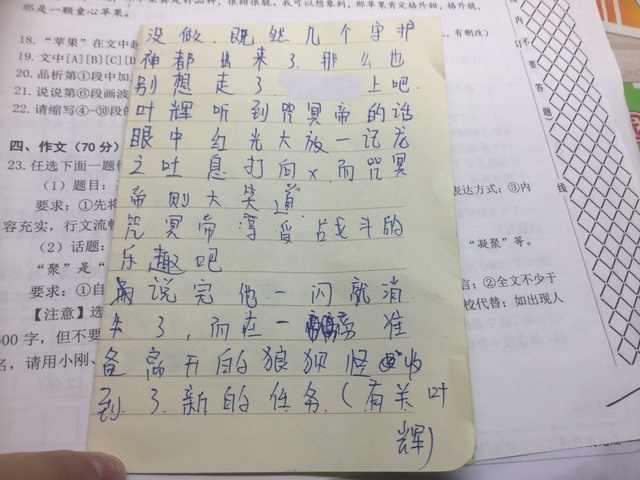 那是一颗童心苹果。
18. “苹果”在文中起
19. 文中[A][B][C][D
20. 品析第①段中加
21. 说说第⑥段画波
22. 请缩写④-⑩段的
四、作文（70 分）
23. 任选下面一题作
（1）题目：
要求：①先将
容充实，行文流畅
（2）话题：
“聚”是“
要求：①自
【注意】选
600 字，但不要
名，请用小刚、
没做.既然几个守护
神都出来了.那么也
别想走了
上吧.
叶辉听到咒冥帝的话
眼中红光大放一记龙
之吐息打向x.而咒冥
帝则大笑道
咒冥帝享受战斗的
乐趣吧
说完他一闪就消
失了,而在一旁准
备离开的狼狈怪收
到了新的任务.(有关叶
辉)
，有删改)
内
订
要
答
表达方式；③内
线
“凝聚”等。
②全文不少于
校代替；如出现人